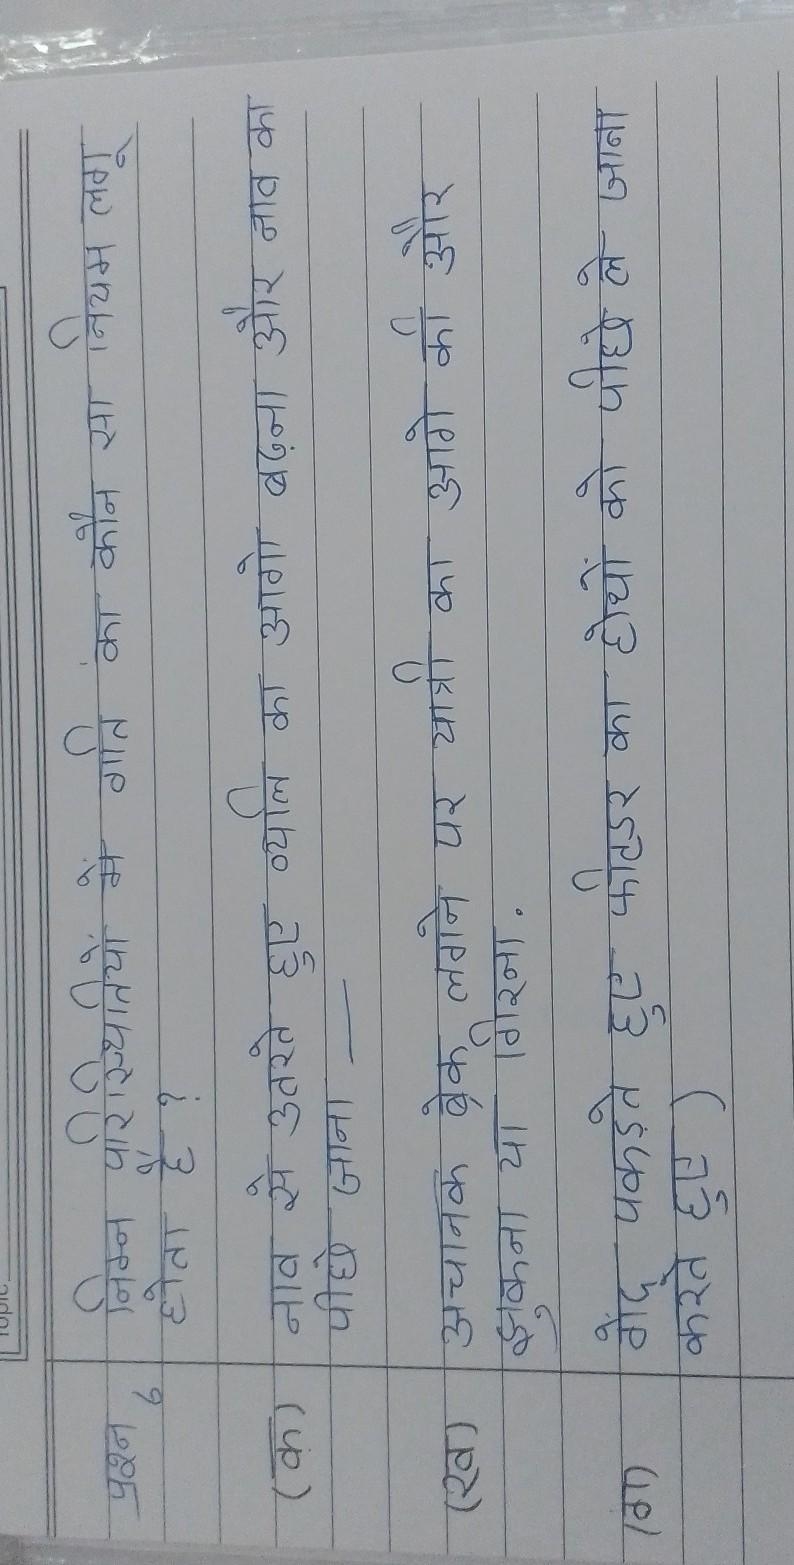 प्रश्न 6 निम्न परिस्थितियों में गति का कौन सा नियम लागू
होता है ?
(क) नाव से उतरते हुए व्यक्ति का आगे बढ़ना और नाव का
पीछे जाना —
(ख) अचानक ब्रेक लगाने पर यात्री का आगे की और
झुकना या गिरना.
(ग) गेंद पकड़ते हुए फील्डर का हाथों को पीछे ले जाना
करते हुए )